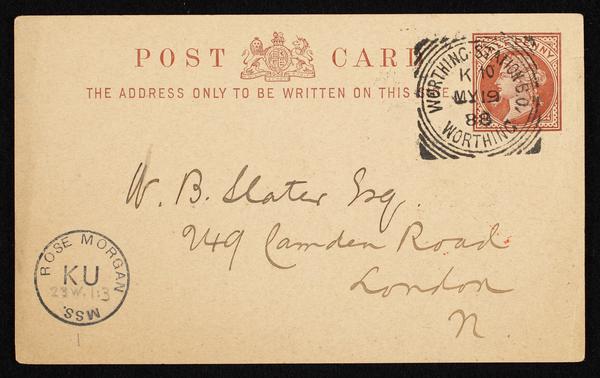 POST CARD
THE ADDRESS ONLY TO BE WRITTEN ON THIS SIDE
WORTHING STATION B.O.
MY 19
88
WORTHING
W. B. Slater Esq.
249 Camden Road
London
N.
ROSE MORGAN
KU
23W.1:3
MSS.
1